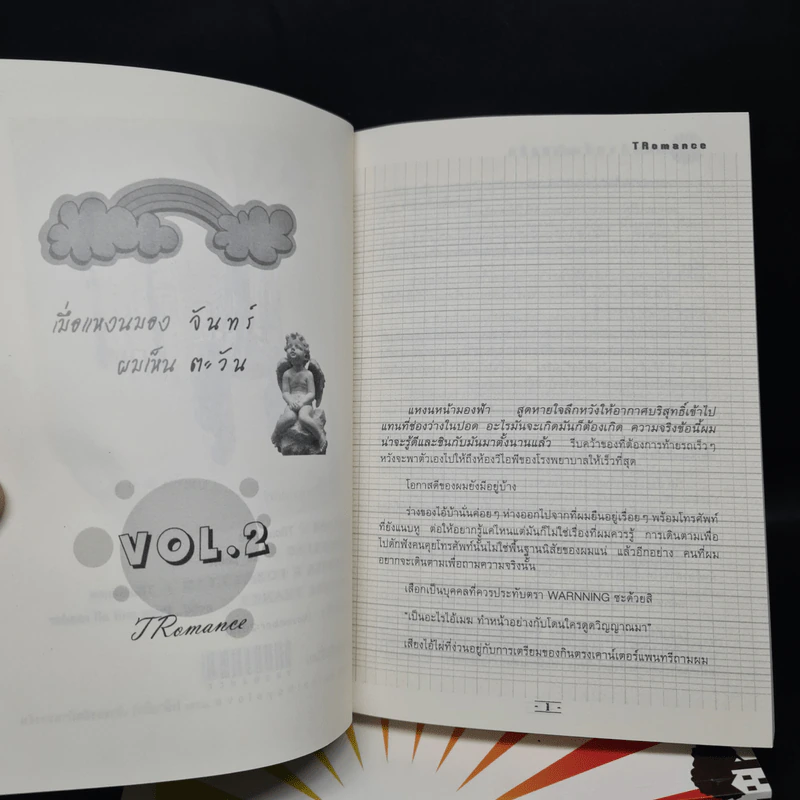 เมื่อแหงนมอง จันทร์
ผมเห็น ตะวัน
VOL.2
TRomance
TRomance
แหงนหน้ามองฟ้า สูดหายใจลึกหวังให้อากาศบริสุทธิ์เข้าไป
แทนที่ช่องว่างในปอด อะไรมันจะเกิดมันก็ต้องเกิด ความจริงข้อนี้ผม
น่าจะรู้ดีและชินกับมันมาตั้งนานแล้ว รีบคว้าของที่ต้องการท้ายรถเร็วๆ
หวังจะพาตัวเองไปให้ถึงห้องวีไอพีของโรงพยาบาลให้เร็วที่สุด
โอกาสดีของผมยังมีอยู่บ้าง
ร่างของไอ้บ้านั่นค่อยๆ ห่างออกไปจากที่ผมยืนอยู่เรื่อยๆ พร้อมโทรศัพท์
ที่ยังแนบหู ต่อให้อยากรู้แค่ไหนแต่มันก็ไม่ใช่เรื่องที่ผมควรรู้ การเดินตามเพื่อ
ไปดักฟังคนคุยโทรศัพท์นั้นไม่ใช่พื้นฐานนิสัยของผมแน่ แล้วอีกอย่าง คนที่ผม
อยากจะเดินตามเพื่อถามความจริงนั้น
เลือกเป็นบุคคลที่ควรประทับตรา WARNNING ซะด้วยสิ
"เป็นอะไรไอ้เมฆ ทำหน้าอย่างกับโดนใครดูดวิญญาณมา"
เสียงไอ้ไผ่ที่ง่วนอยู่กับการเตรียมของกินตรงเคาน์เตอร์แพนทรีถามผม
1